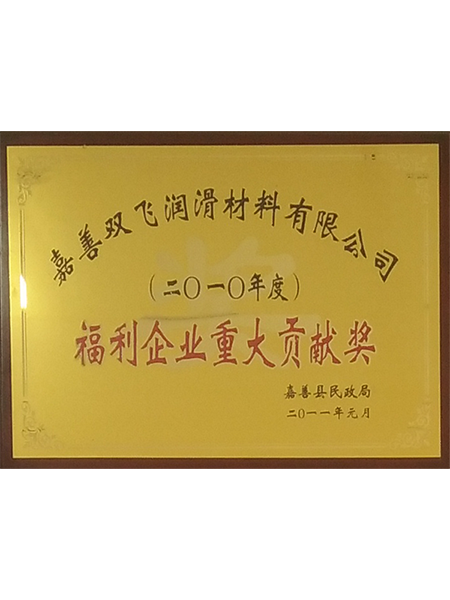 嘉善双飞润滑材料有限公司
(二〇一〇年度)
福利企业重大贡献奖
嘉善县民政局
二〇一一年元月